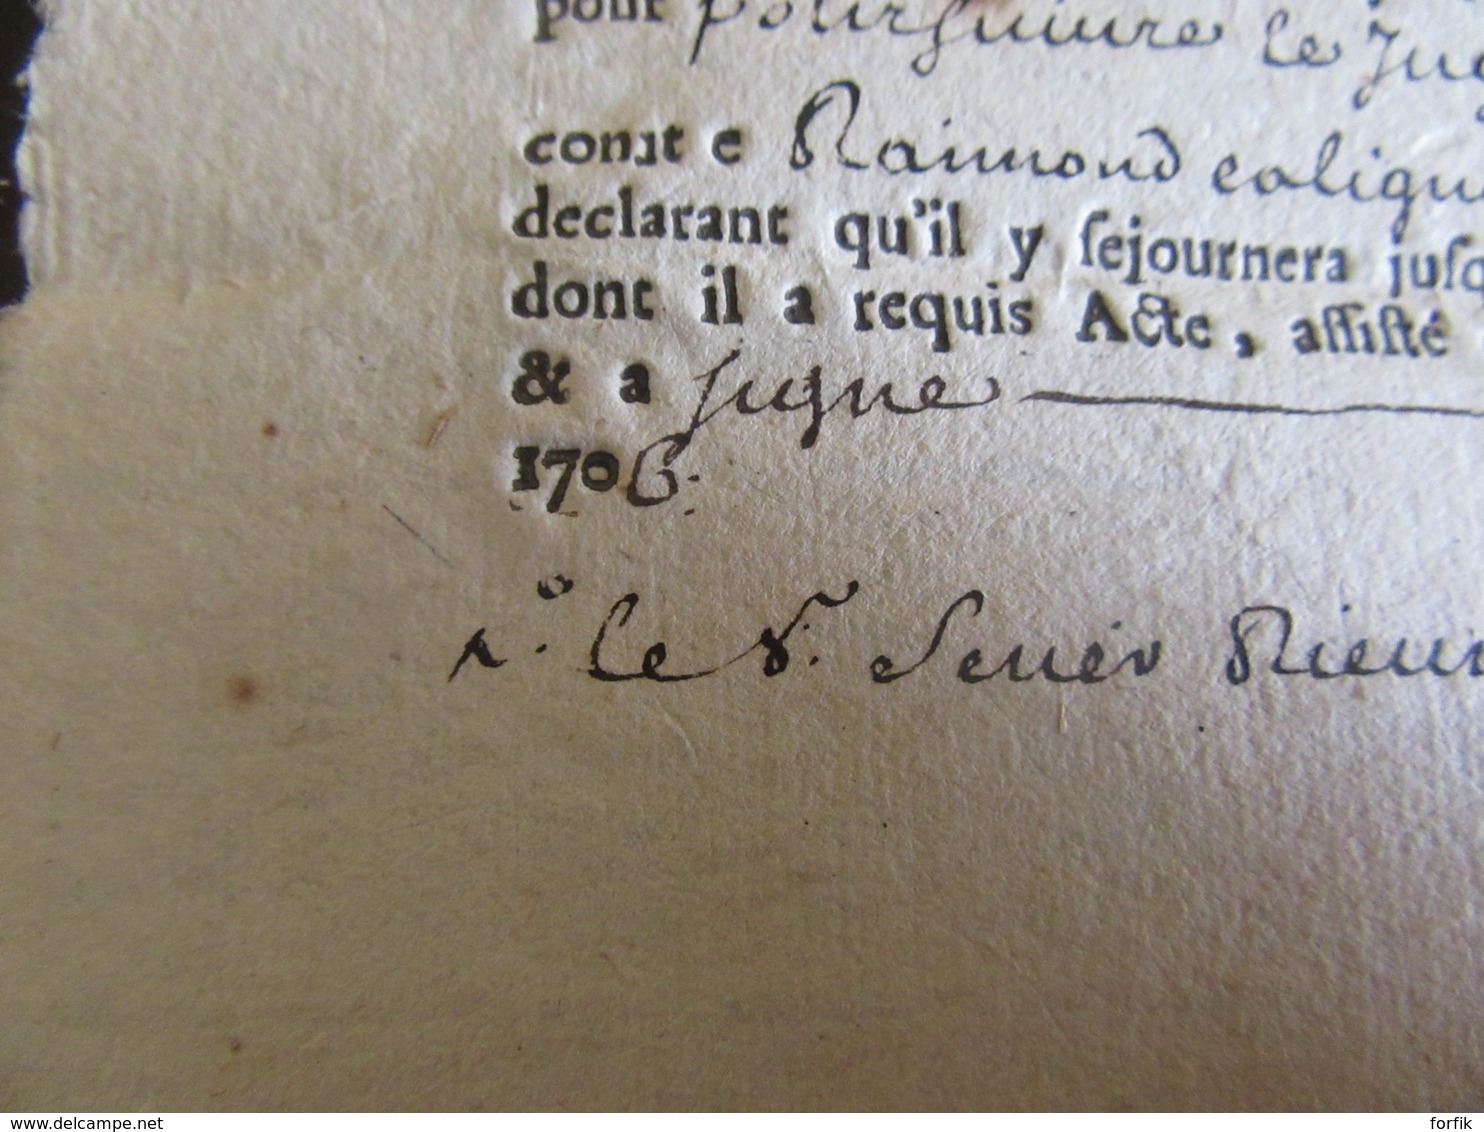 pour poursuiure le Jug
contre Raimond colign
declarant qu'il y ſejournera juſq
dont il a requis Acte, aſſiſté
& a ſigne
1706.
le Sr. Sener Rieu
delcampe.net
forfik